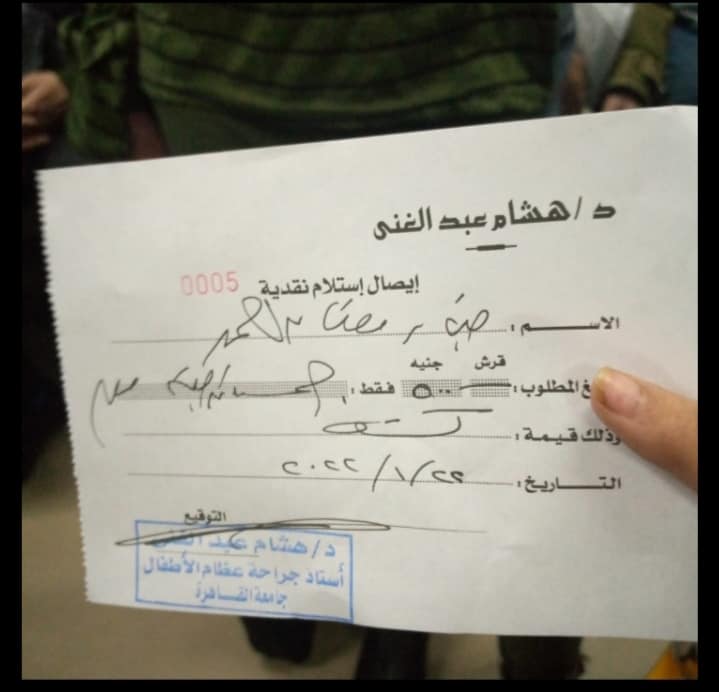 د/ هشام عبد الغنى
إيصال إستلام نقدية 0005
الاســـــم :
قرش جنيه
غ المطلوب : ٥٠٠ فقط :
وذلك قيمة : كشف
التـــاريخ : ٢٠٢٢/١/٢٢
التوقيع
د/ هشام عبد الغنى
أستاذ جراحة عظام الأطفال
جامعة القاهرة